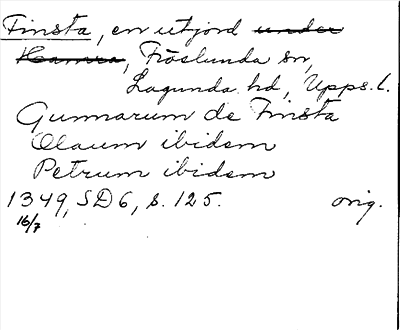 Finsta, en utjord under
Hamra, Fröslunda sn,
Lagunda hd, Upps. l.
Gunnarum de Finsta
Olaum ibidem
Petrum ibidem
1349, SD6, s. 125. orig.
16/7